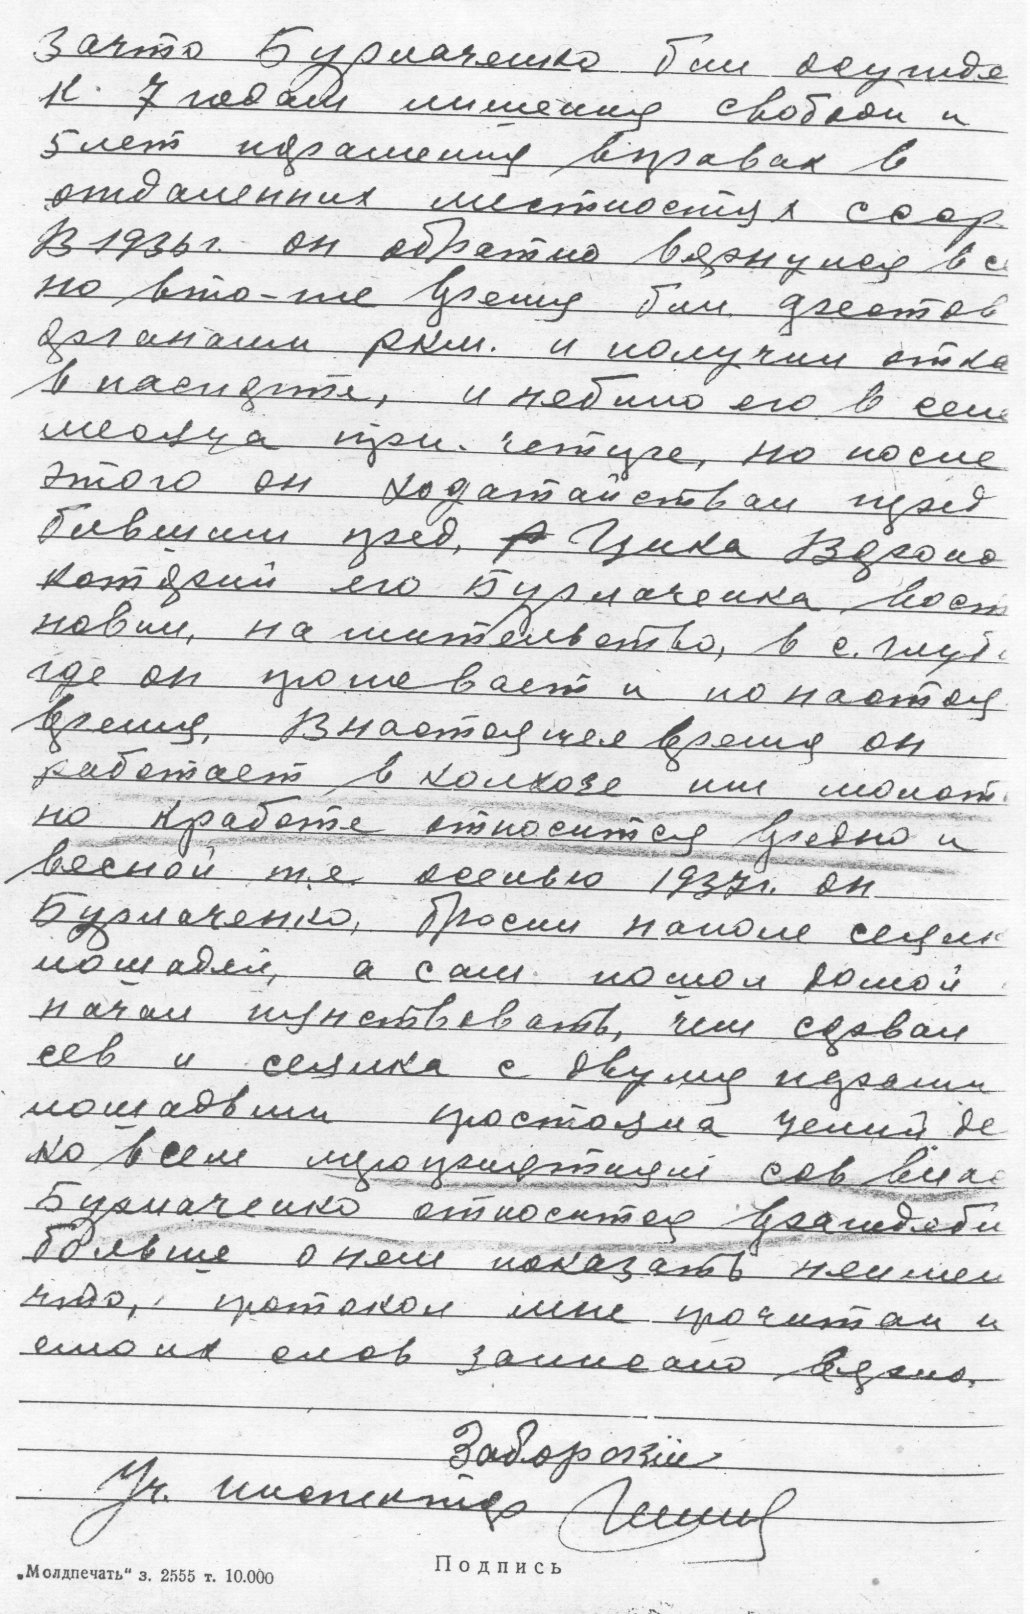 Зачто Бурлаченко бил осужде
к 7 годам лишения свободи и
5 лет паражения вправах в
отдаленних местностях ссср.
В 1936 г. он обратно вярнулся в се
но вто-же время бил арестов
органами ркм. и получил отка
в паспарте, и небило его в селе
месяца три. четире, но после
этого он ходатайствал пред
бившим пред. Цика Вороно
которий его Бурлаченка вост
новил, на жительство, в с. глуб
где он прожевает и по настоя
время, В настоящея время он
работает в колхозе им молот
но кработе относится вредно и
весной т.е. осенью 1937 г. он
Бурлаченко, бросил наполе сеялк
лошадей, а сам пошол домой
начал пянствовать, чем сорвал
сев и сеялка с двумя парами
лошадьми простояла целий де
ко всем мероприятиям сов влас
Бурлаченко относится враждеби
больше о нем показать неимею
что, протокол мне прочитан и
смоих слов записано вярно.
Заборский
Уч. инспектор
Подпись
„Молдпечать“ з. 2555 т. 10.000